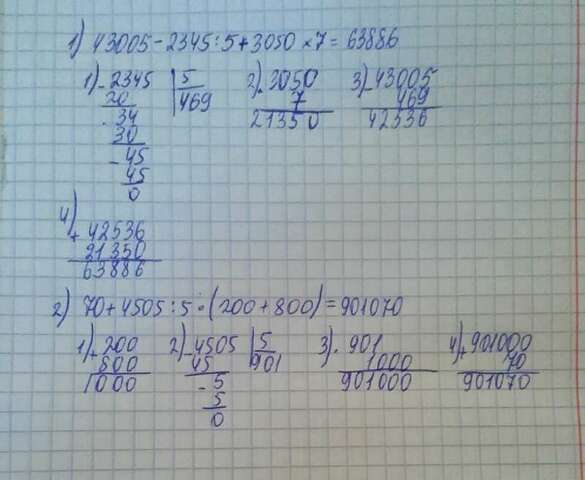 1) 43005 - 2345 : 5 + 3050 × 7 = 63886
1) - 2345 | 5
20 469
- 34
30
- 45
45
0
2) . 3050
7
21350
3) - 43005
469
42536
4)
+ 42536
21350
63886
2) 70 + 4505 : 5 · (200 + 800) = 901070
1) + 200
800
1000
2) - 4505 | 5
45 901
- 5
5
0
3) . 901
1000
901000
4) + 901000
70
901070